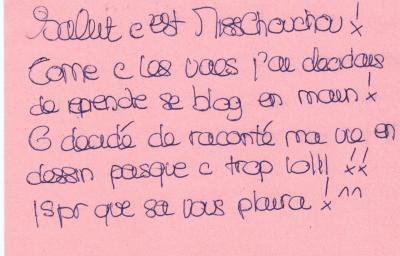 Salut c'est MissChouchou !
Come c les vacs j'ai decidais
de rprende se blog en main !
G decidé de raconté ma vie en
dessin pasque c trop lolll !!
Jspr que sa vous plaira ! ^^